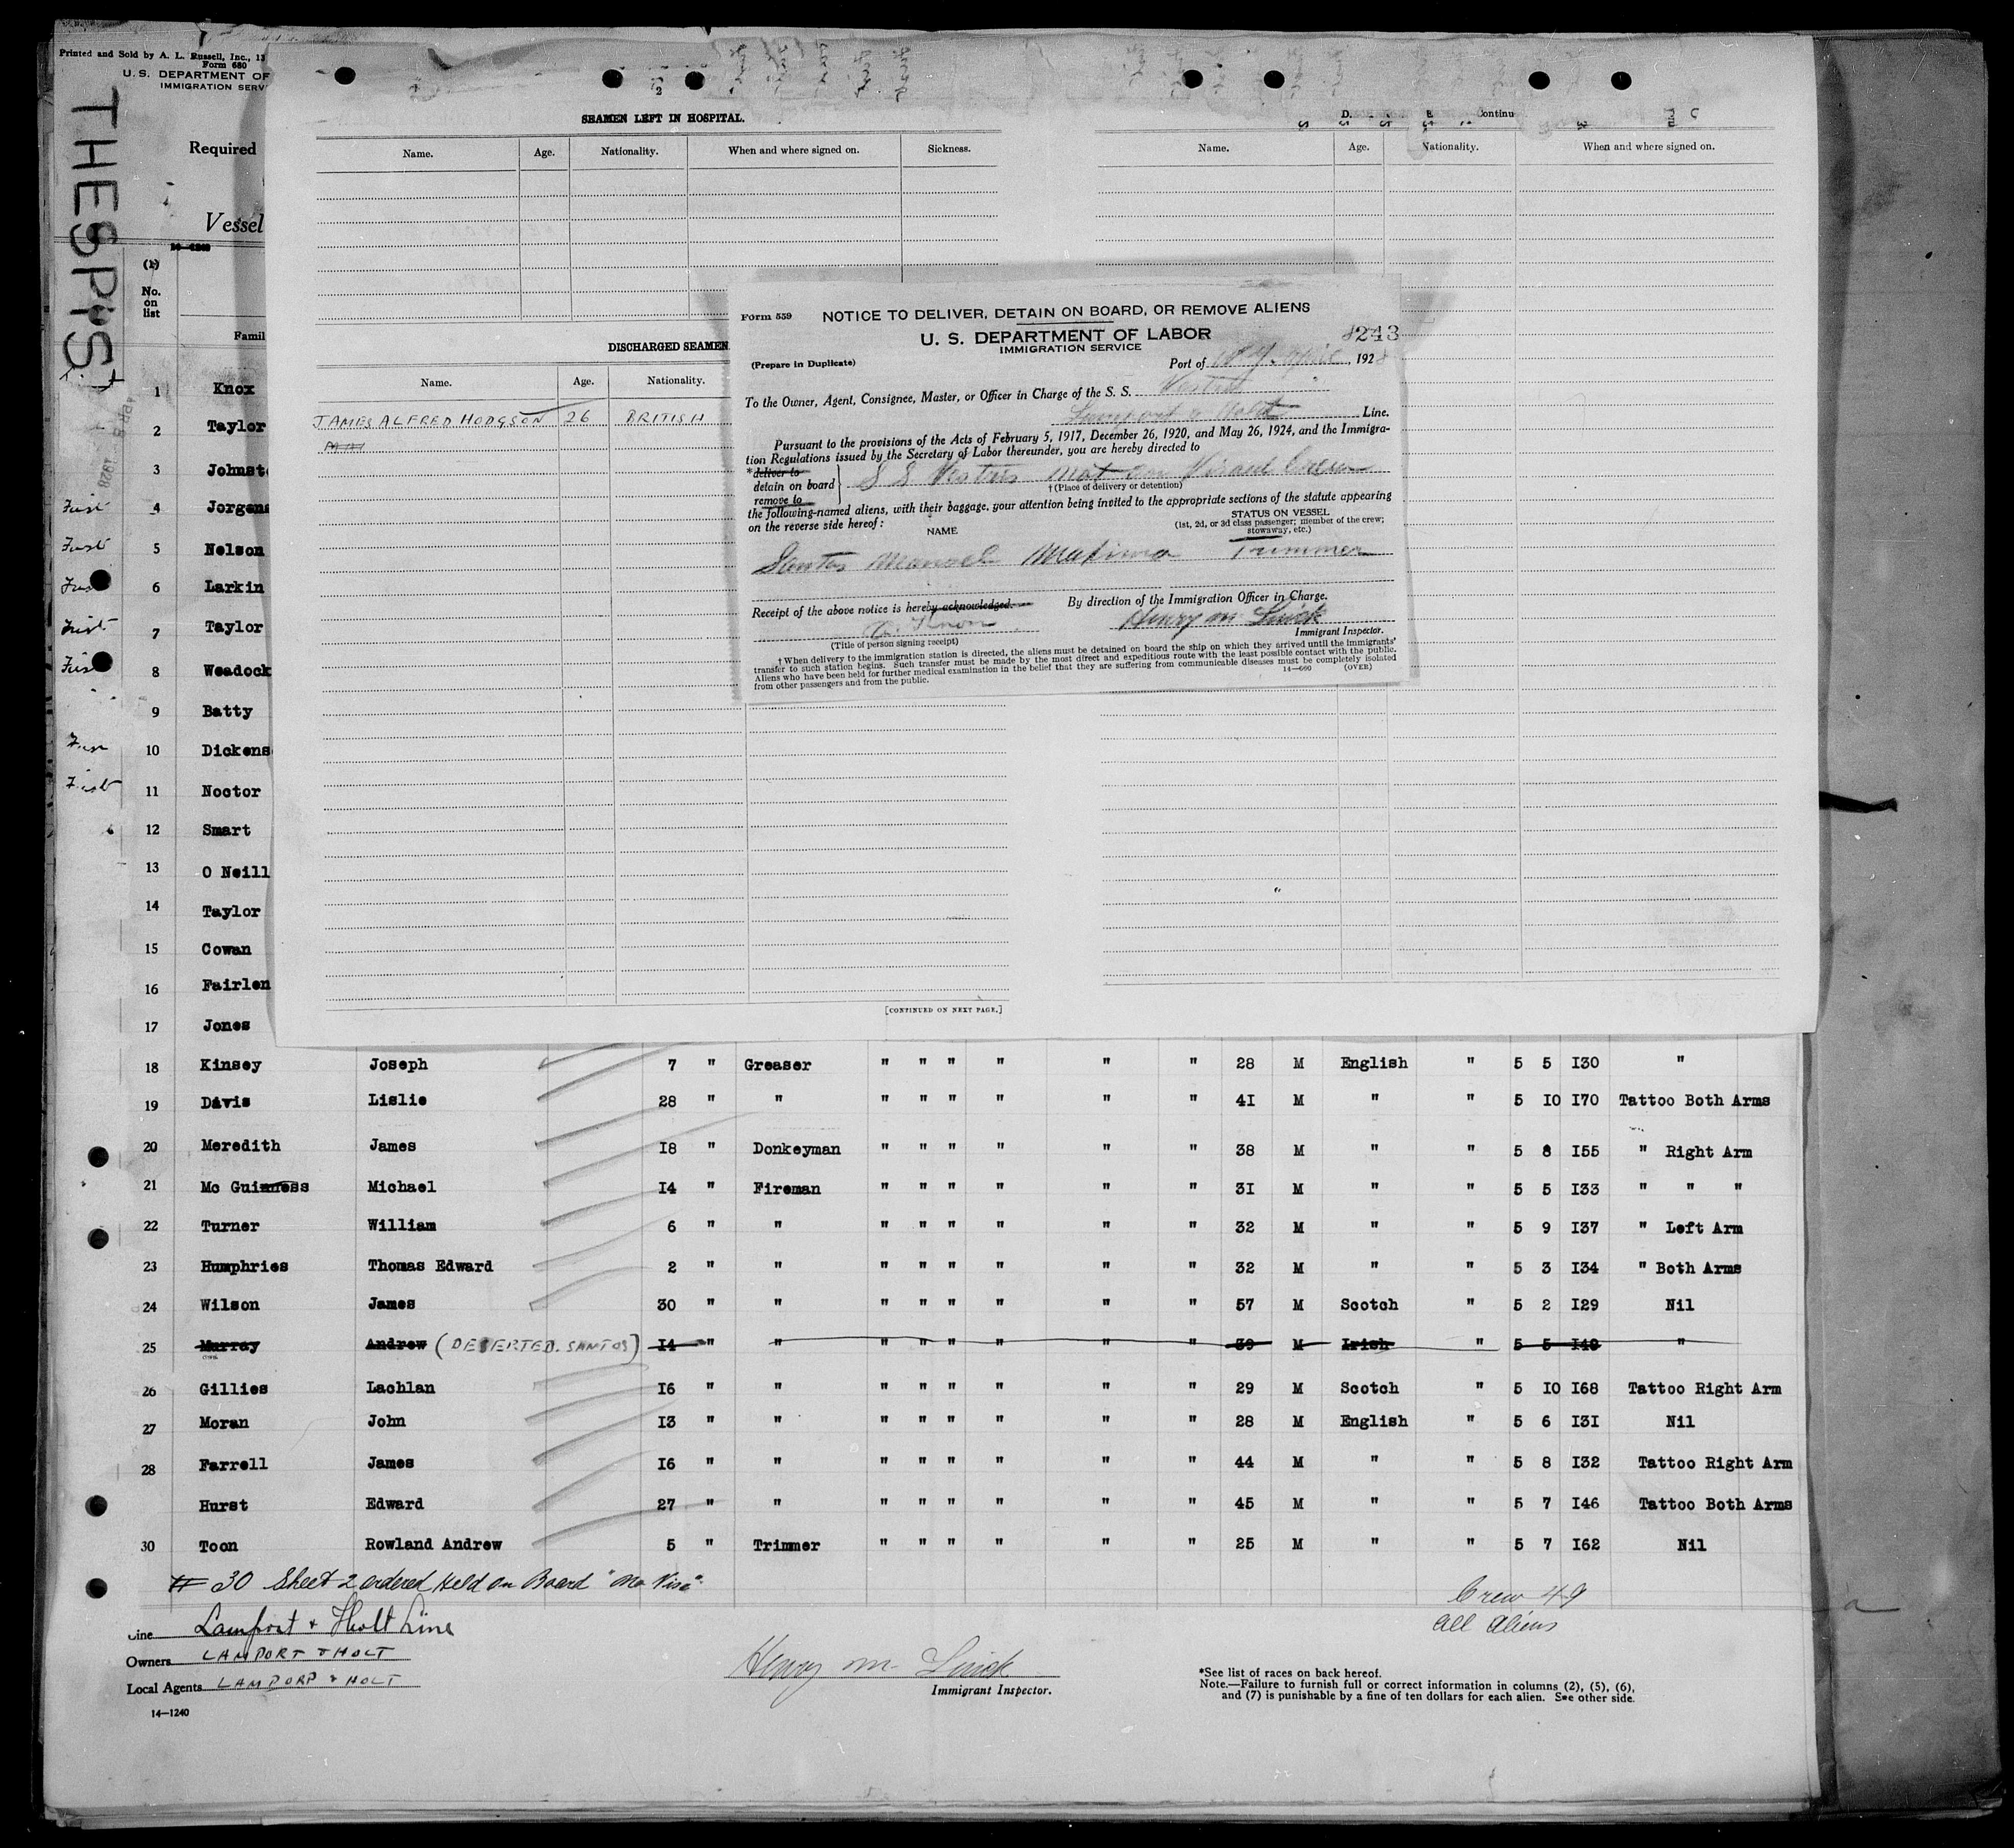 Printed and Sold by A. L. Russell, Inc., 13
Form 680
U. S. DEPARTMENT OF
IMMIGRATION SERV
THESPIS
Required
Vessel
(1)
No.
on
list
Famil
1 Knox
2 Taylor
3 Johnst
First 4 Jorgens
First 5 Nelson
6 Larkin
First 7 Taylor
First 8 Weadock
9 Batty
10 Dickens
First 11 Noctor
12 Smart
13 O Neill
14 Taylor
15 Cowan
16 Fairlen
17 Jones
2
SEAMEN LEFT IN HOSPITAL.
Name. Age. Nationality. When and where signed on. Sickness.
Continu
Name. Age. Nationality. When and where signed on.
DISCHARGED SEAMEN
Name. Age. Nationality.
JAMES ALFRED HODGSON 26 BRITISH
[CONTINUED ON NEXT PAGE.]
Form 559 NOTICE TO DELIVER, DETAIN ON BOARD, OR REMOVE ALIENS
U. S. DEPARTMENT OF LABOR 8243
IMMIGRATION SERVICE
(Prepare in Duplicate) Port of N Y. , 1928
To the Owner, Agent, Consignee, Master, or Officer in Charge of the S. S. Vestris
Lamport & Holt Line.
Pursuant to the provisions of the Acts of February 5, 1917, December 26, 1920, and May 26, 1924, and the Immigra-
tion Regulations issued by the Secretary of Labor thereunder, you are hereby directed to
*deliver to
detain on board S S Vestris not an Visaed Crew
remove to †(Place of delivery or detention)
the following-named aliens, with their baggage, your attention being invited to the appropriate sections of the statute appearing
on the reverse side hereof:
NAME STATUS ON VESSEL
(1st, 2d, or 3d class passenger; member of the crew;
stowaway, etc.)
Santos Manoel Maximo Trimmer
Receipt of the above notice is hereby acknowledged. By direction of the Immigration Officer in Charge.
Knox Henry M Quick
(Title of person signing receipt) Immigrant Inspector.
†When delivery to the immigration station is directed, the aliens must be detained on board the ship on which they arrived until the immigrants'
transfer to such station begins. Such transfer must be made by the most direct and expeditious route with the least possible contact with the public.
Aliens who have been held for further medical examination in the belief that they are suffering from communicable diseases must be completely isolated
from other passengers and from the public. 14—660 (OVER)
18 Kinsey Joseph 7 " Greaser " " " " " " 28 M English " 5 5 I30 "
19 Davis Lislie 28 " " " " " " " " 4I M " " 5 I0 I70 Tattoo Both Arms
20 Meredith James I8 " Donkeyman " " " " " " 38 M " " 5 8 I55 " Right Arm
21 Mc Guinness Michael I4 " Fireman " " " " " " 3I M " " 5 5 I33 " " "
22 Turner William 6 " " " " " " " " 32 M " " 5 9 I37 " Left Arm
23 Humphries Thomas Edward 2 " " " " " " " " 32 M " " 5 3 I34 " Both Arms
24 Wilson James 30 " " " " " " " " 57 M Scotch " 5 2 I29 Nil
25 Murray Andrew (DESERTED. SANTOS) I4 " " " " " " " " 39 M Irish " 5 5 I40 "
26 Gillies Lachlan I6 " " " " " " " " 29 M Scotch " 5 I0 I68 Tattoo Right Arm
27 Moran John I3 " " " " " " " " 28 M English " 5 6 I3I Nil
28 Farrell James I6 " " " " " " " " 44 M " " 5 8 I32 Tattoo Right Arm
Hurst Edward 27 " " " " " " " " 45 M " " 5 7 I46 Tattoo Both Arms
30 Toon Rowland Andrew 5 " Trimmer " " " " " " 25 M " " 5 7 I62 Nil
# 30 Sheet 2 ordered Held on Board "no Visa".
Crew 49
all aliens
Line Lamport & Holt Line
Owners LAMPORT & HOLT
Local Agents LAMPORT & HOLT
Henry M Quick
Immigrant Inspector.
*See list of races on back hereof.
Note.—Failure to furnish full or correct information in columns (2), (5), (6),
and (7) is punishable by a fine of ten dollars for each alien. See other side.
14—1240